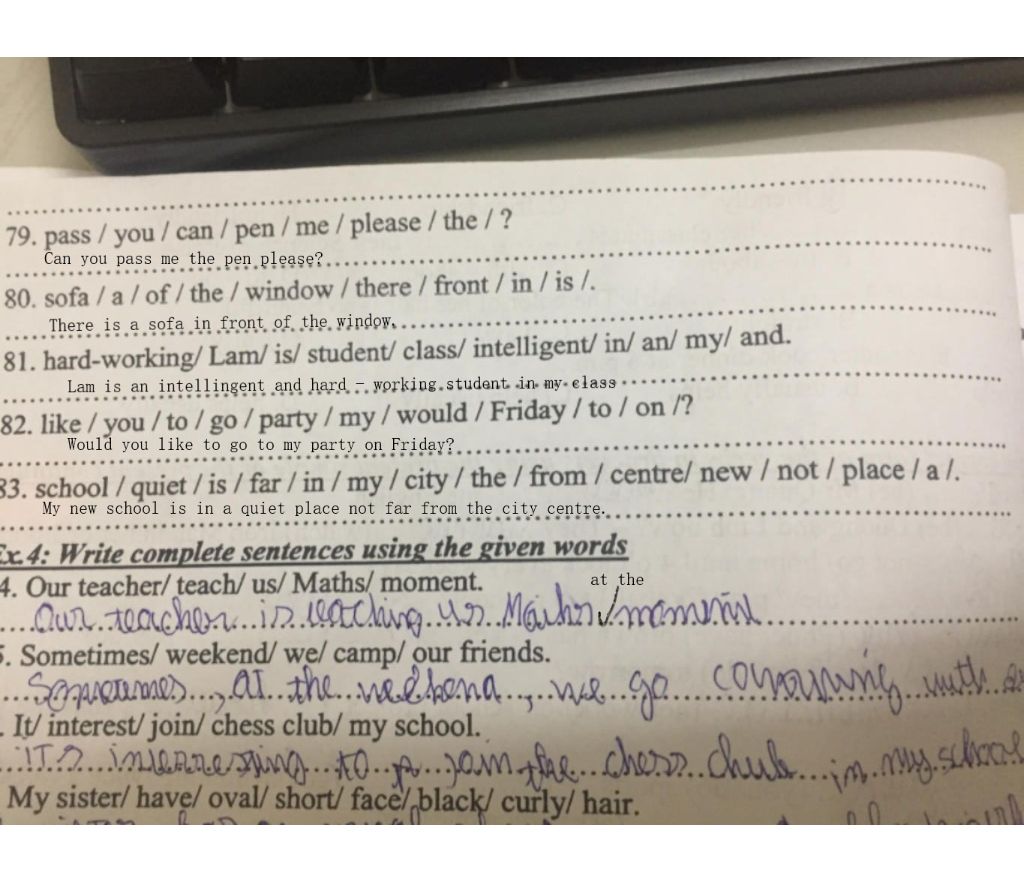 79. pass / you / can / pen / me / please / the / ?
Can you pass me the pen please?
80. sofa / a / of / the / window / there / front / in / is /.
There is a sofa in front of the window.
81. hard-working/ Lam/ is/ student/ class/ intelligent/ in/ an/ my/ and.
Lam is an intellingent and hard - working student in my class
82. like / you / to / go / party / my / would / Friday / to / on /?
Would you like to go to my party on Friday?
83. school / quiet / is / far / in / my / city / the / from / centre/ new / not / place / a /.
My new school is in a quiet place not far from the city centre.
Ex.4: Write complete sentences using the given words
4. Our teacher/ teach/ us/ Maths/ moment.
at the
Our teacher is teaching us Maths moment
5. Sometimes/ weekend/ we/ camp/ our friends.
Sometimes, at the weekend, we go with
. It/ interest/ join/ chess club/ my school.
to join the chess in my school
My sister/ have/ oval/ short/ face/ black/ curly/ hair.